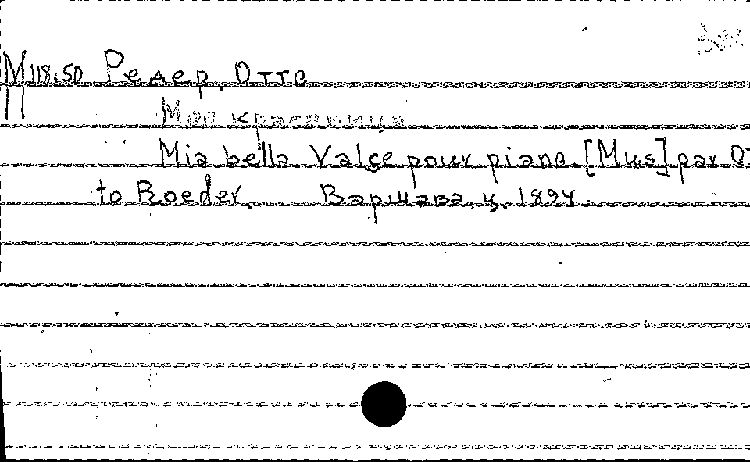 М 118.50 Редер, Отто
Моя красавица
Mia bella. Valçe pour piano. [Mus] par Ot
to Roeder. Варшава, ц. 1894